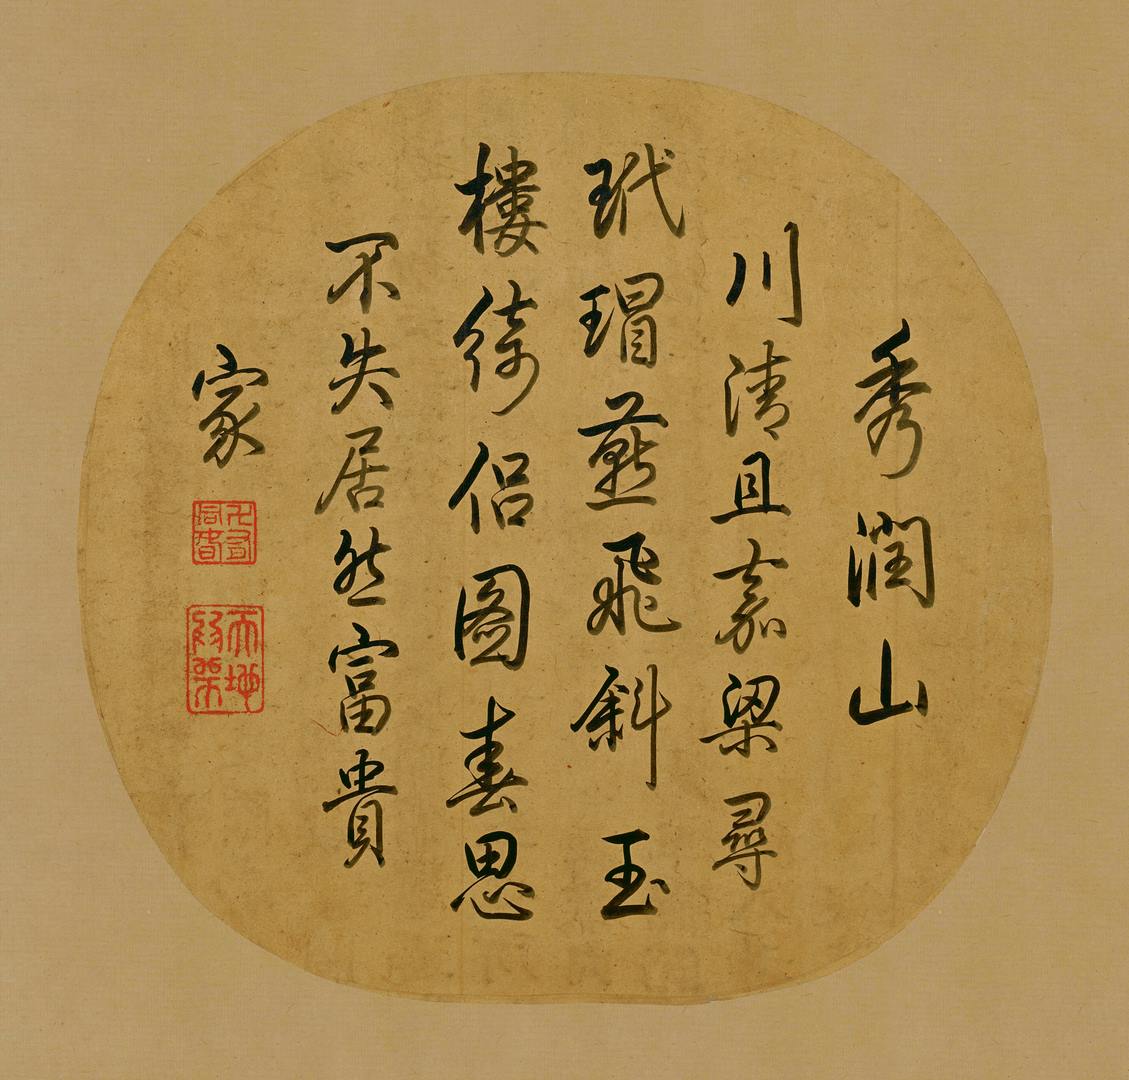 秀潤山
川清且嘉梁尋
玳瑁燕飛斜玉
樓綺侶圖春思
不失居然富貴
家